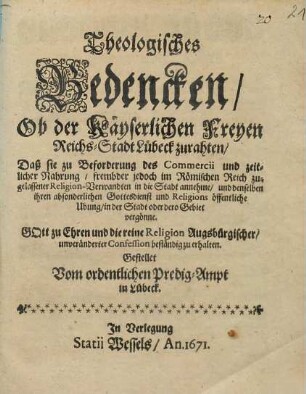 20 21
Theologisches
Bedencken/
Ob der Käyserlichen Freyen
Reichs-Stadt Lübeck zurahten/
Daß sie zu Beforderung des Commercii und zeit-
licher Nahrung / frembder jedoch im Römischen Reich zu-
gelassener Religion-Verwandten in die Stadt annehme/ und denselben
ihren absonderlichen Gottesdienst und Religions öffentliche
Ubung/ in der Stadt oder dero Gebiet
vergönne.
GOtt zu Ehren und die reine Religion Augsbürgischer/
unveränderter Confession beständig zu erhalten.
Gestellet
Vom ordentlichen Predig-Ampt
in Lübeck.
In Verlegung
Statii Wessels/ An. 1671.